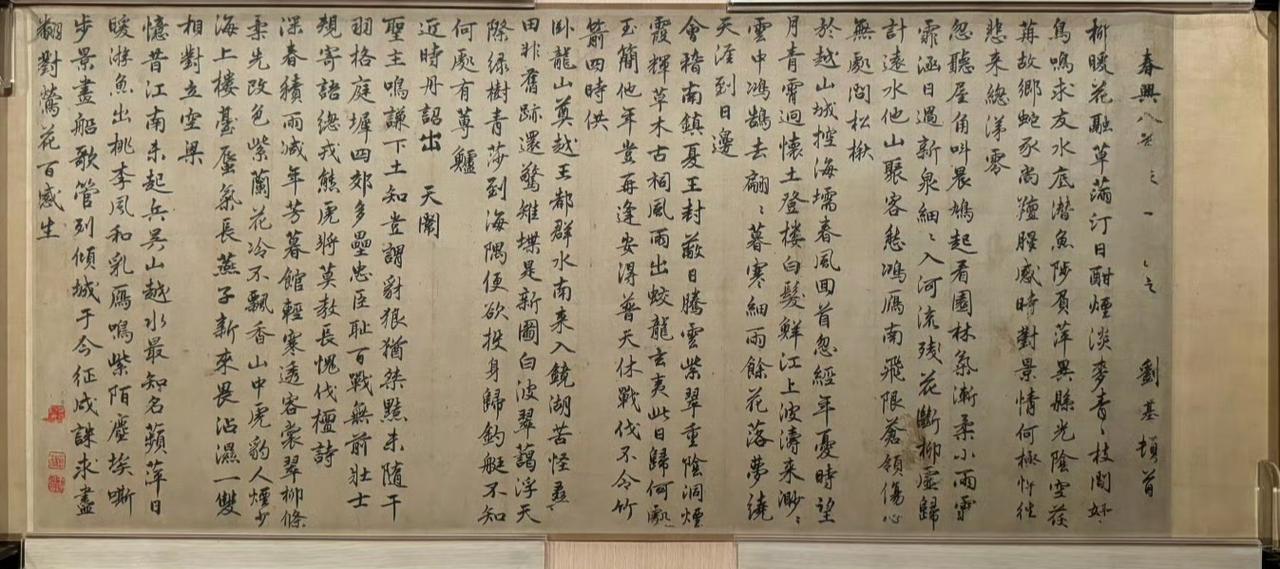 春興八首之一之 劉基頓首
柳暖花融草滿汀日酣煙淡麥青〻枝間好
鳥鳴求友水底潛魚陟負萍異縣光陰空荏
苒故鄉蛇豕尚羶腥感時對景情何極忤往
悲來總涕零
忽聽屋角叫晨鳩起看園林氣漸柔小雨霏
霏涵日過新泉細〻入河流殘花斷柳虛歸
計遠水他山聚客愁鴻雁南飛限蒼領傷心
無處問松楸
於越山城控海壖春風回首忽經年憂時望
月青霄迥懷土登樓白髮鮮江上波濤來渺〻
雲中鴻鵠去翩〻暮寒細雨餘花落夢繞
天涯到日邊
會稽南鎮夏王封蔽日騰雲紫翠重陰洞煙
霞輝草木古祠風雨出蛟龍玄夷此日歸何處
玉簡他年豈再逢安得普天休戰伐不令竹
箭四時供
臥龍山奠越王都群水南來入鏡湖苦怪桑
田非舊跡還驚雉堞是新圖白波翠藹浮天
際綠樹青莎到海隅便欲投身歸釣艇不知
何處有蓴鱸
近時丹詔出 天閽
聖主鳴謙下土知豈謂豺狼猶桀黠未隨干
羽格庭墀四郊多壘忠臣恥百戰無前壯士
規寄語總戎熊虎將莫教長愧伐檀詩
深春積雨減年芳暮館輕寒透客裳翠柳條
柔先改色紫蘭花冷不飄香山中虎豹人煙少
海上樓臺蜃氣長燕子新來畏沾濕一雙
相對立空梁
憶昔江南未起兵吳山越水最知名蘋萍日
暖游魚出桃李風和乳雁鳴紫陌塵埃嘶
步景畫船歌管列傾城于今征戍誅求盡
翻對鶯花百感生